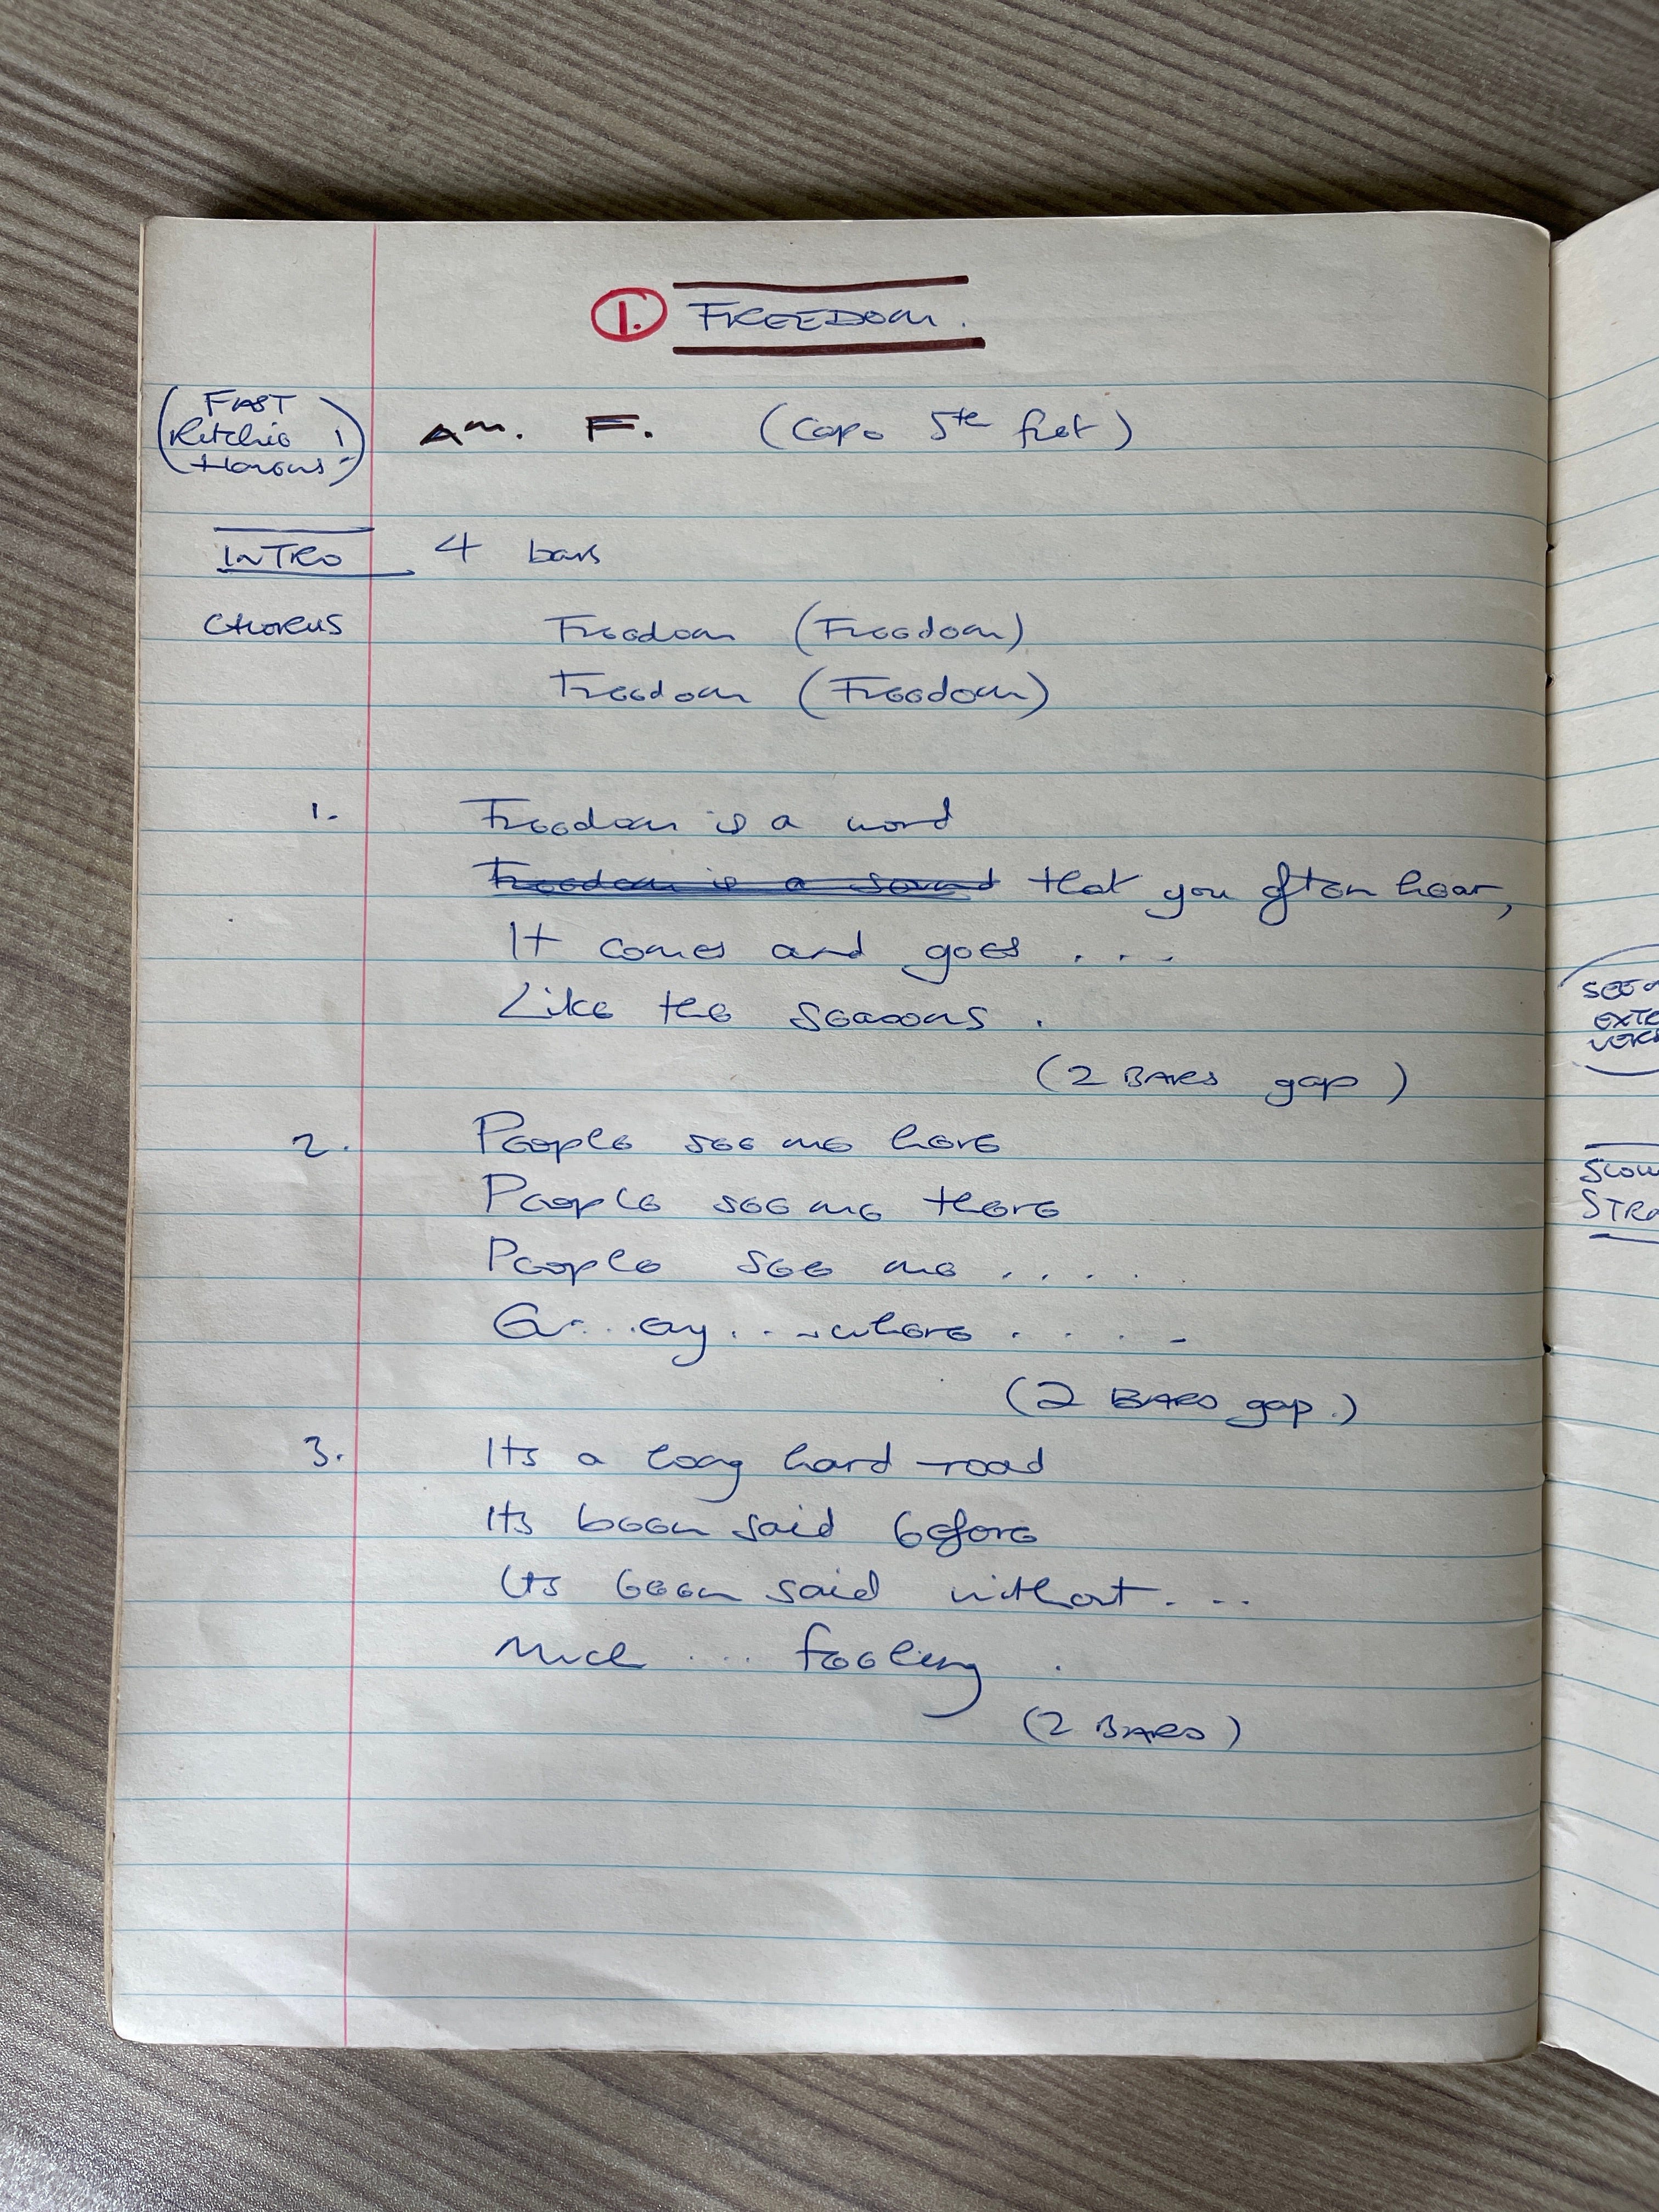 1. FREEDOM.
(FAST
Ritchie
Havens!)
Am. F. (Capo 5th fret)
INTRO 4 bars
CHORUS Freedom (Freedom)
Freedom (Freedom)
1. Freedom is a word
Freedom is a sound that you often hear,
It comes and goes ...
Like the seasons .
(2 BARS gap)
2. People see me here
People see me there
People see me .....
...where ....
(2 BARS gap.)
3. Its a long hard road
Its been said before
Its been said without...
Much ... feeling .
(2 BARS)